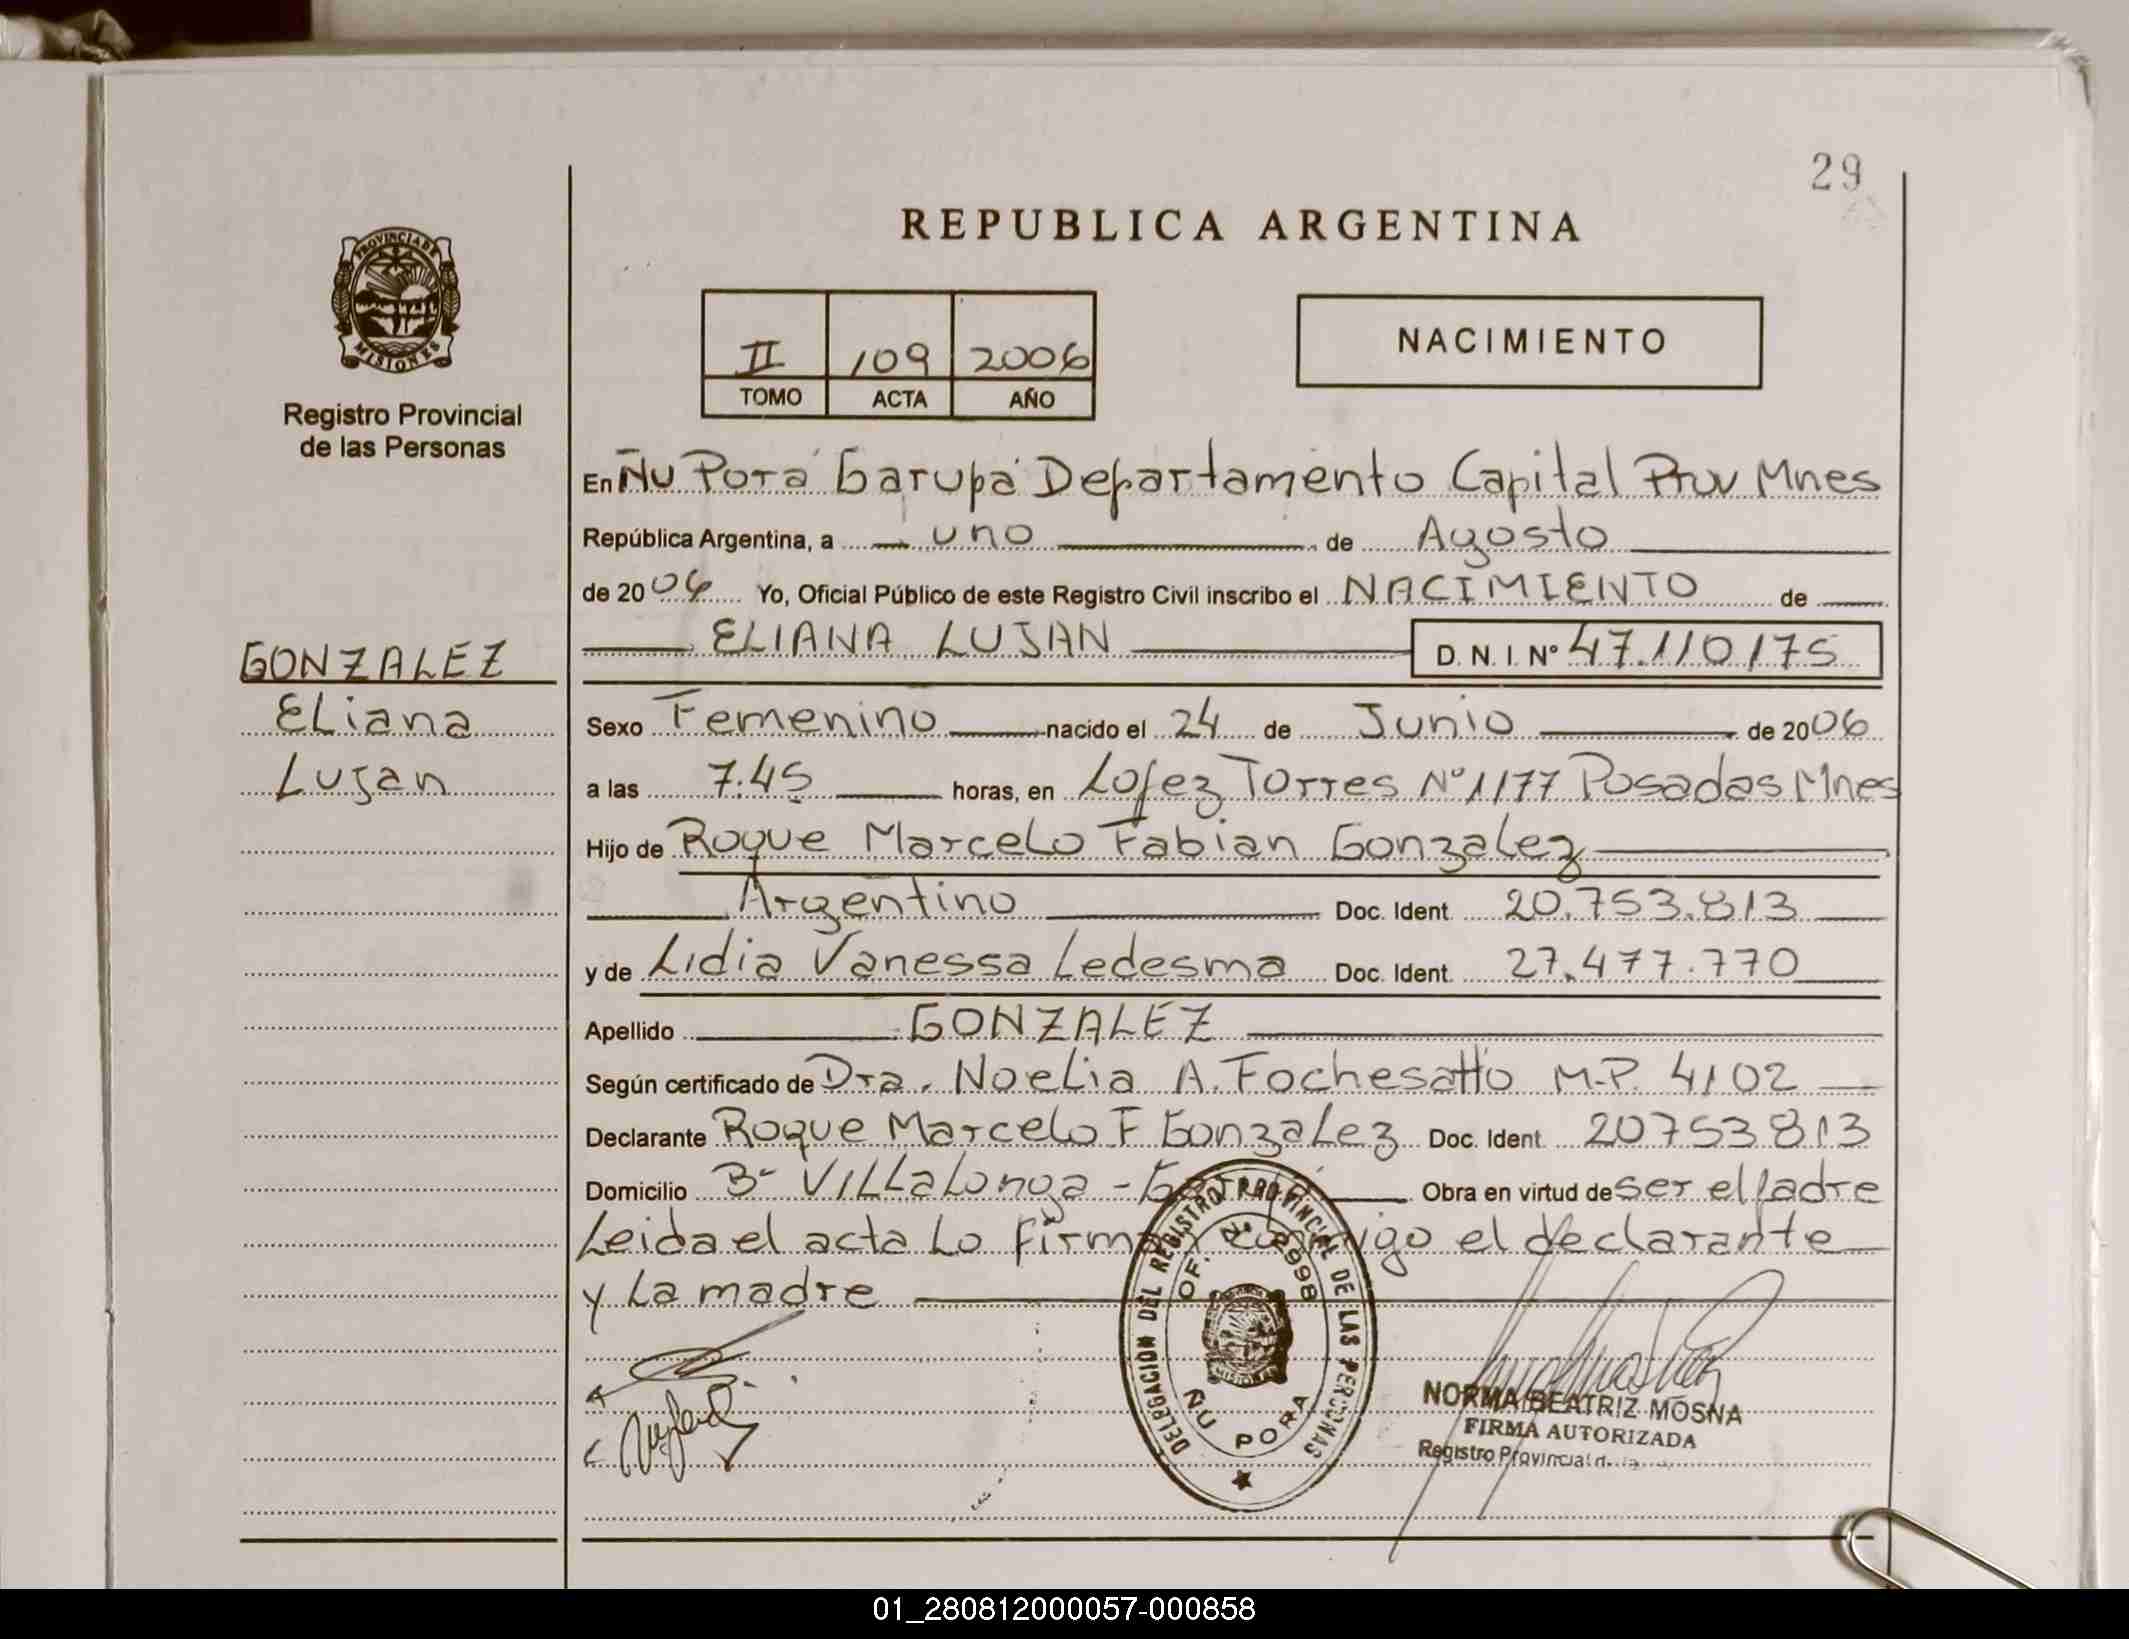 29
REPUBLICA ARGENTINA
PROVINCIA DE
MISIONES
Registro Provincial
de las Personas
II 109 2006
TOMO ACTA AÑO
NACIMIENTO
En Ñu Porá Garupá Departamento Capital Prov Mnes
República Argentina, a uno de Agosto
de 2006 Yo, Oficial Público de este Registro Civil inscribo el NACIMIENTO de
ELIANA LUJAN D. N. I. Nº 47.110175
GONZALEZ
Eliana
Lujan
Sexo Femenino nacido el 24 de Junio de 2006
a las 7.45 horas, en Lopez Torres Nº 1177 Posadas Mnes
Hijo de Roque Marcelo Fabian Gonzalez
Argentino Doc. Ident. 20.753.813
y de Lidia Vanessa Ledesma Doc. Ident. 27.477.770
Apellido GONZALEZ
Según certificado de Dra. Noelia A. Fochesatto M.P. 4102
Declarante Roque Marcelo F Gonzalez Doc. Ident. 20753813
Domicilio Bº Villalonga - Obra en virtud de ser el padre
Leida el acta Lo firman conmigo el declarante
y La madre
DELEGACION DEL REGISTRO PROVINCIAL DE LAS PERSONAS
OF. Nº 2998
MISIONES
ÑU PORA
NORMA BEATRIZ MOSNA
FIRMA AUTORIZADA
Registro Provincial
01_280812000057-000858